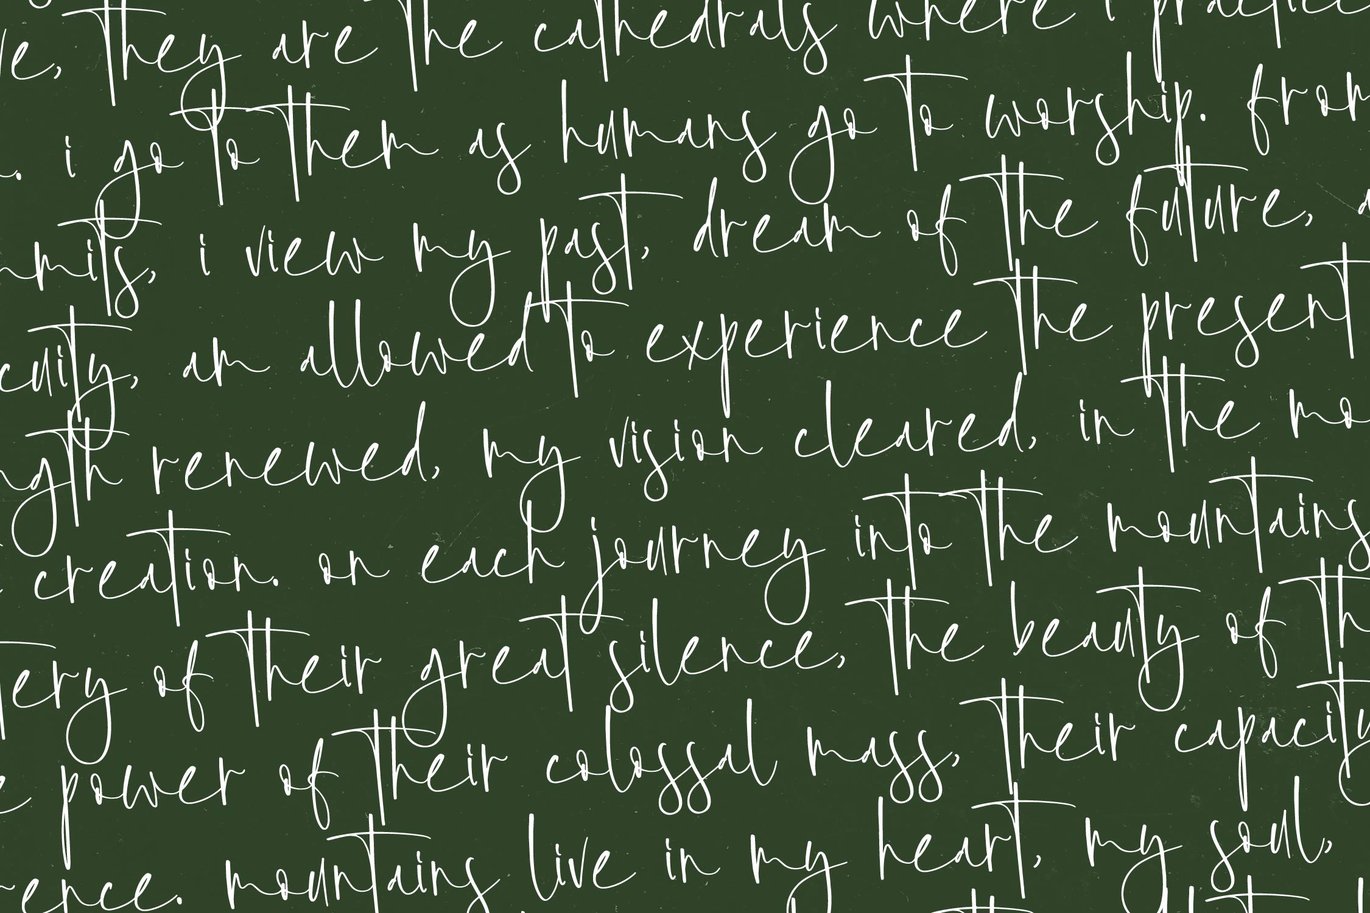 they are the cathedrals where i practice
. i go to them as humans go to worship. from
, i view my past, dream of the future,
, am allowed to experience the present
renewed, my vision cleared, in the
creation. on each journey into the mountains
of their great silence, the beauty of
power of their colossal mass, their capacity
. mountains live in my heart, my soul,